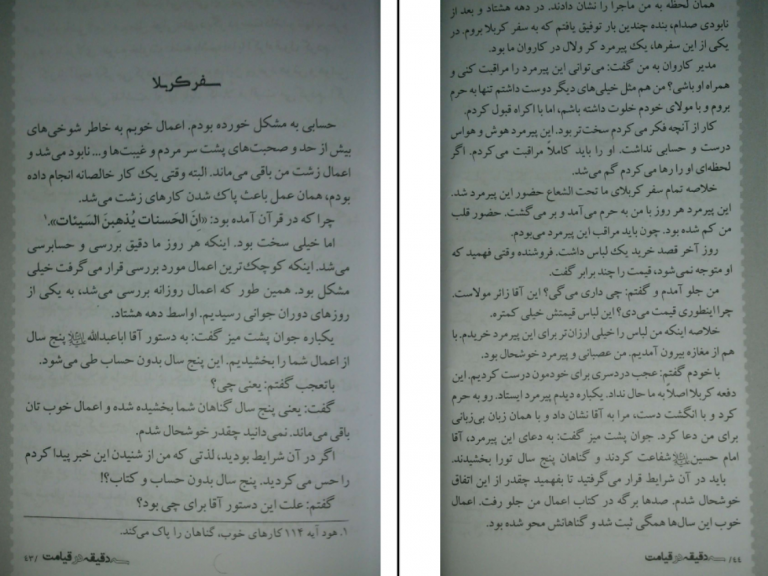 سفر کربلا
حسابی به مشکل خورده بودم. اعمال خوبم به خاطر شوخی‌های
بیش از حد و صحبت‌های پشت سر مردم و غیبت‌ها و... نابود می‌شد و
اعمال زشت من باقی می‌ماند. البته وقتی یک کار خالصانه انجام داده
بودم، همان عمل باعث پاک شدن کارهای زشت می‌شد.
چرا که در قرآن آمده بود: «اِنَّ الحَسنات یُذهِبنَ السَیئات».۱
اما خیلی سخت بود. اینکه هر روز ما دقیق بررسی و حسابرسی
می‌شد. اینکه کوچک‌ترین اعمال مورد بررسی قرار می‌گرفت خیلی
مشکل بود. همین طور که اعمال روزانه بررسی می‌شد، به یکی از
روزهای دوران جوانی رسیدیم. اواسط دهه هشتاد.
یکباره جوان پشت میز گفت: به دستور آقا اباعبدالله پنج سال
از اعمال شما را بخشیدیم. این پنج سال بدون حساب طی می‌شود.
باتعجب گفتم: یعنی چی؟
گفت: یعنی پنج سال گناهان شما بخشیده شده و اعمال خوب تان
باقی می‌ماند. نمی‌دانید چقدر خوشحال شدم.
اگر در آن شرایط بودید، لذتی که من از شنیدن این خبر پیدا کردم
را حس می‌کردید. پنج سال بدون حساب و کتاب؟!
گفتم: علت این دستور آقا برای چی بود؟
۱. هود آیه ۱۱۴ کارهای خوب، گناهان را پاک می‌کند.
دقیقه در قیامت /۴۳
همان لحظه به من ماجرا را نشان دادند. در دهه هشتاد و بعد از
نابودی صدام، بنده چندین بار توفیق یافتم که به سفر کربلا بروم. در
یکی از این سفرها، یک پیرمرد کر ولال در کاروان ما بود.
مدیر کاروان به من گفت: می‌توانی این پیرمرد را مراقبت کنی و
همراه او باشی؟ من هم مثل خیلی‌های دیگر دوست داشتم تنها به حرم
بروم و با مولای خودم خلوت داشته باشم، اما با اکراه قبول کردم.
کار از آنچه فکر می‌کردم سخت‌تر بود. این پیرمرد هوش و هواس
درست و حسابی نداشت. او را باید کاملاً مراقبت می‌کردم. اگر
لحظه‌ای او را رها می‌کردم گم می‌شد.
خلاصه تمام سفر کربلای ما تحت الشعاع حضور این پیرمرد شد.
این پیرمرد هر روز با من به حرم می‌آمد و بر می‌گشت. حضور قلب
من کم شده بود. چون باید مراقب این پیرمرد می‌بودم.
روز آخر قصد خرید یک لباس داشت. فروشنده وقتی فهمید که
او متوجه نمی‌شود، قیمت را چند برابر گفت.
من جلو آمدم و گفتم: چی داری می‌گی؟ این آقا زائر مولاست.
چرا اینطوری قیمت می‌دی؟ این لباس قیمتش خیلی کمتره.
خلاصه اینکه من لباس را خیلی ارزان‌تر برای این پیرمرد خریدم. با
هم از مغازه بیرون آمدیم. من عصبانی و پیرمرد خوشحال بود.
با خودم گفتم: عجب دردسری برای خودمون درست کردیم. این
دفعه کربلا اصلاً به ما حال نداد. یکباره دیدم پیرمرد ایستاد. رو به حرم
کرد و با انگشت دست، مرا به آقا نشان داد و با همان زبان بی‌زبانی
برای من دعا کرد. جوان پشت میز گفت: به دعای این پیرمرد، آقا
امام حسین شفاعت کردند و گناهان پنج سال تورا بخشیدند.
باید در آن شرایط قرار می‌گرفتید تا بفهمید چقدر از این اتفاق
خوشحال شدم. صدها برگه در کتاب اعمال من جلو رفت. اعمال
خوب این سال‌ها همگی ثبت شد و گناهانش محو شده بود.
۴۴/ دقیقه در قیامت